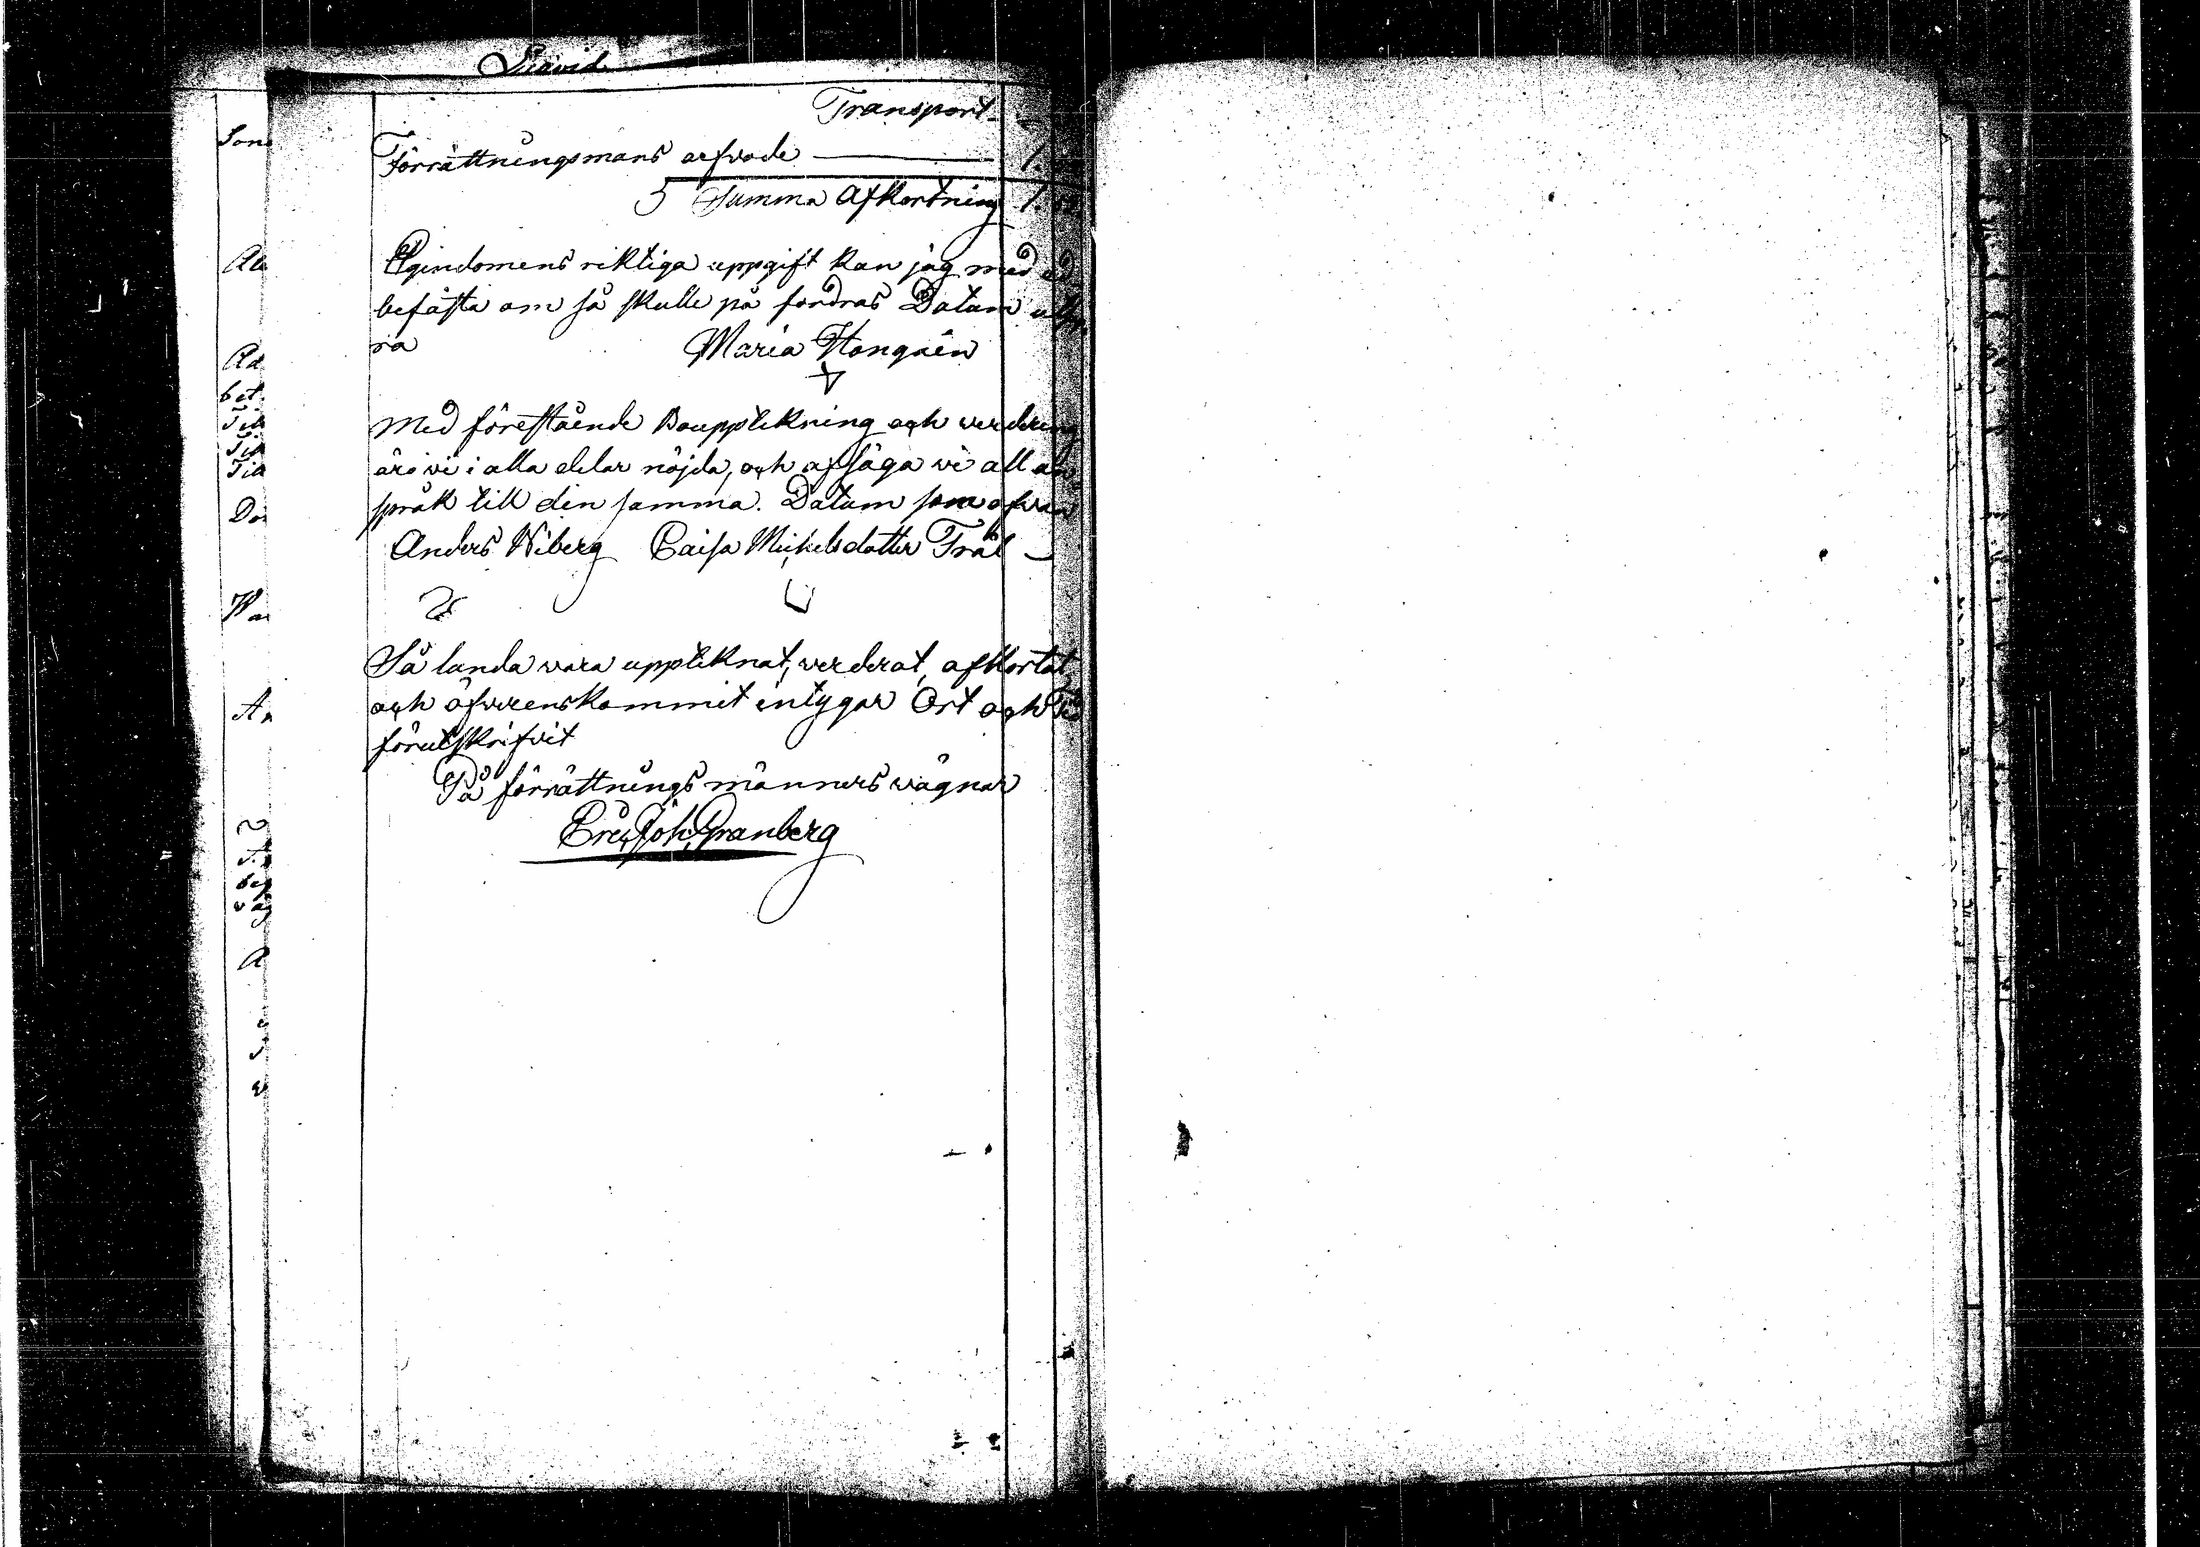 Transport
Förrättningsmans arfvode 1.
5 Summa Afkortning 1.
Egindomens riktiga uppgift kan jag med ed
befästa om så skulle på fordras Datum utsu
ra Maria Hongain
Med förestående Boupptekning och verdering
äro vi i alla delar nöjda, och afsäga vi all an
språk till din samma. Datum som ofvan
Anders Wiberg Caisa Mickelsdotter Träl
Så lunda vara uppteknat, verderat, afkortat,
och öfverenskommit intygar Ort och Tid
förutskrifvit
På förrättnings männers vägnar
Eric Joh. Granberg
Son
Ad
bet
Til
Til
Wa